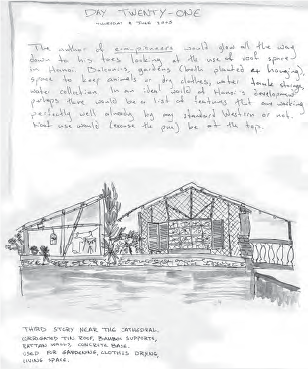 DAY TWENTY-ONE
THURSDAY 9 JUNE 2005
The author of eco.pioneers would glow all the way
down to his toes looking at the use of roof space
in Hanoi. Balconies, gardens (both planted & hanging)
space to keep animals or dry clothes, water tank storage,
water collection. In an ideal world of Hanoi's development
perhaps there would be a list of features that are working
perfectly well already by any standard Western or not.
Roof use would (excuse the pun) be at the top.
THIRD STORY NEAR THE CATHEDRAL.
CORRUGATED TIN ROOF, BAMBOO SUPPORTS,
RATTAN WALLS, CONCRETE BASE.
USED FOR GARDENING, CLOTHES DRYING,
LIVING SPACE.